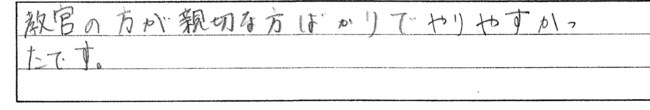 教官の方が親切な方ばかりでやりやすかっ
たです。